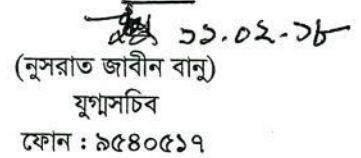 ১১.০২.১৮
(নুসরাত জাবীন বানু)
যুগ্মসচিব
ফোন : ৯৫৪০৫১৭